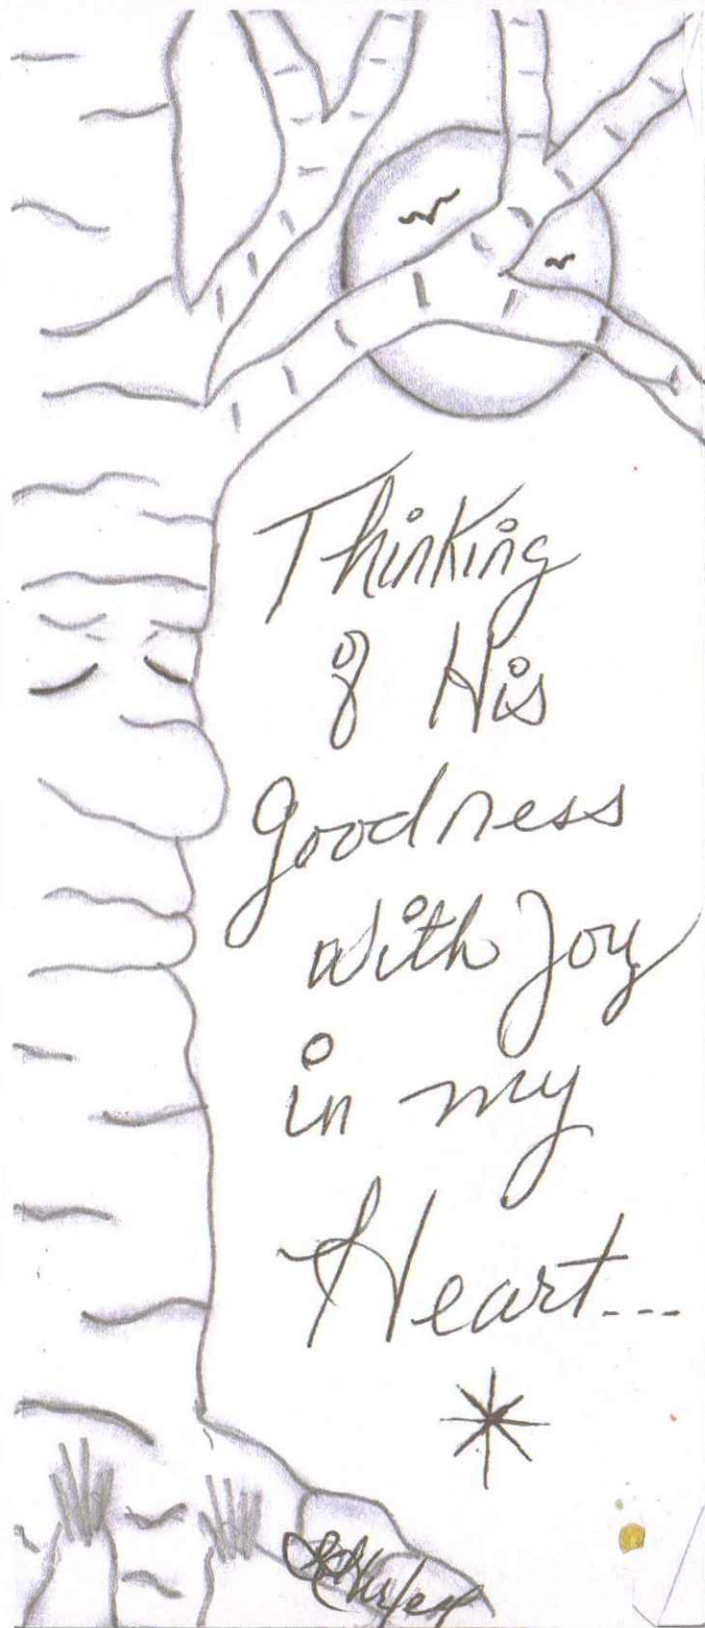 Thinking
of His
goodness
with Joy
in my
Heart...